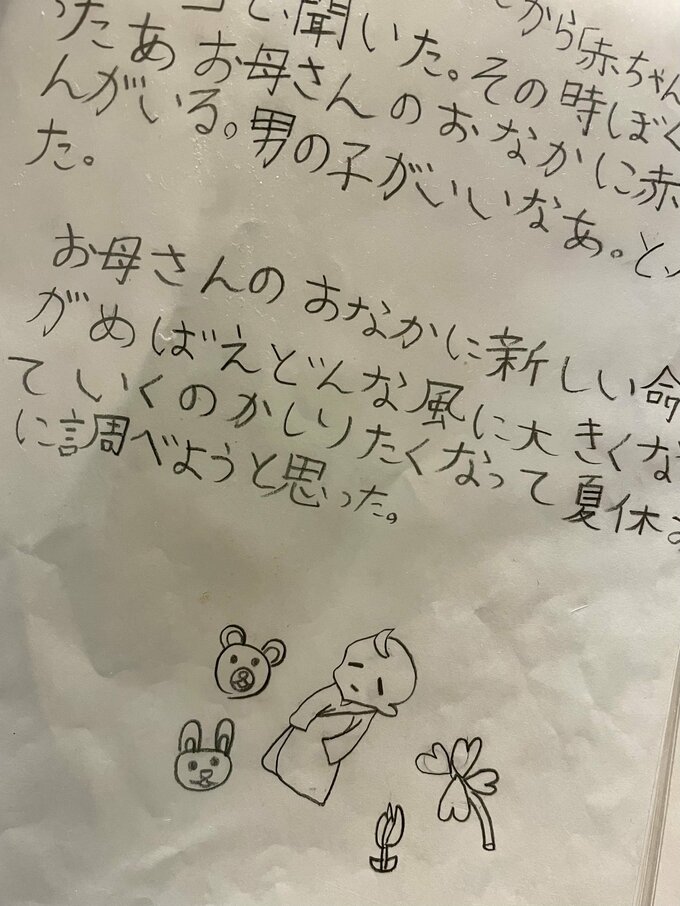 で、聞いた。その時ぼく
から「赤ちゃん
ったあお母さんのおなかに赤
んがいる。男の子がいいなあ。と、
た。
お母さんのおなかに新しい命
がめばえどんな風に大きくな
ていくのかしりたくなって夏休み
に調べようと思った。